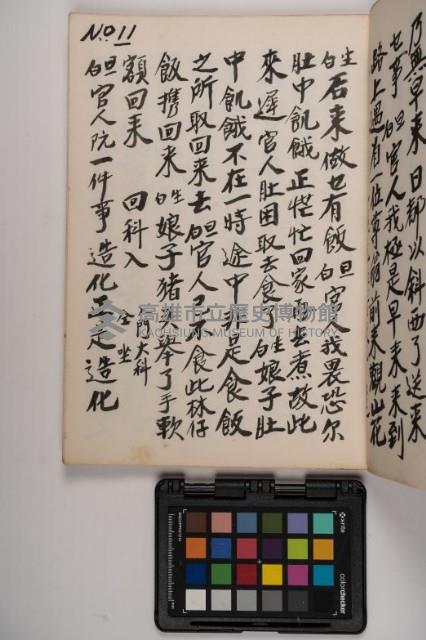 乃無早來日都以斜西了送來
乜事 旦白官人我極是早來來到
路上遇有一位尊翁前來觀山花
No 11
生白 后来做乜有飯 旦白 官人我畏恐尔
肚中飢餓 正恾忙回家 去煮故此
來遲 官人肚困取去食了 生白 娘子肚
中飢餓不在一時 途中 是食飯
之所取回来去 旦白 官人 食此林仔
飯携回来 生白 娘子猪 举了手軟
額回来 回科入 門大科 坐
旦白 官人阮一件事造化 是造化
高雄市立歷史博物館
KAOHSIUNG MUSEUM OF HISTORY
x-rite
colorchecker